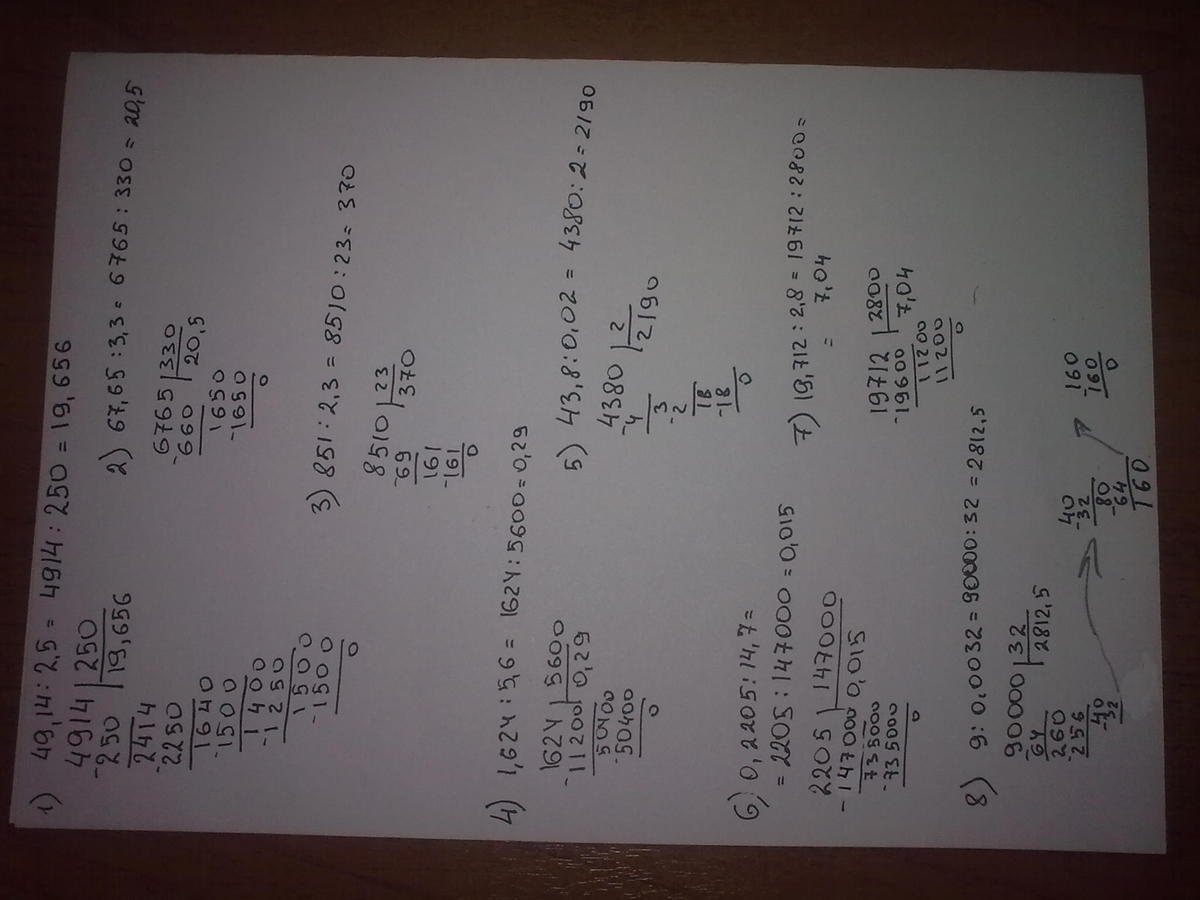 1) 49,14 : 2,5 = 4914 : 250 = 19,656
4914 | 250
-250 19,656
-2414
2250
1640
-1500
1400
-1250
1500
-1500
0
2) 67,65 : 3,3 = 6765 : 330 = 20,5
-6765 | 330
660 20,5
1650
-1650
0
3) 851 : 2,3 = 8510 : 23 = 370
8510 | 23
-69 370
161
-161
0
4) 1,624 : 5,6 = 1624 : 5600 = 0,29
1624 | 5600
-11200 0,29
50400
-50400
0
5) 43,8 : 0,02 = 4380 : 2 = 2190
4380 | 2
-4 2190
3
-2
18
-18
0
6) 0,2205 : 14,7 =
= 2205 : 147000 = 0,015
2205 | 147000
-147000 0,015
735000
-735000
0
7) 19,712 : 2,8 = 19712 : 2800 =
= 7,04
19712 | 2800
-19600 7,04
11200
11200
0
8) 9 : 0,0032 = 90000 : 32 = 2812,5
90000 | 32
-64 2812,5
260
-256
-40
32
40
-32
80
-64
160
160
-160
0